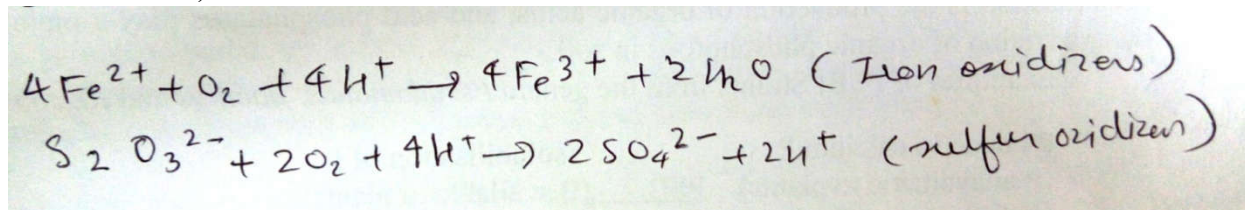 4Fe²⁺ + O₂ + 4H⁺ → 4Fe³⁺ + 2H₂O (Iron oxidizers)
S₂O₃²⁻ + 2O₂ + 4H⁺ → 2SO₄²⁻ + 2H⁺ (sulfur oxidizers)